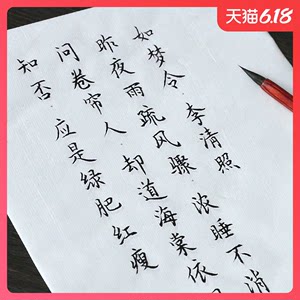 天猫6.18
如梦令·李清照
昨夜雨疏风骤·浓睡不消
问卷帘人·却道海棠依
知否·应是绿肥红瘦